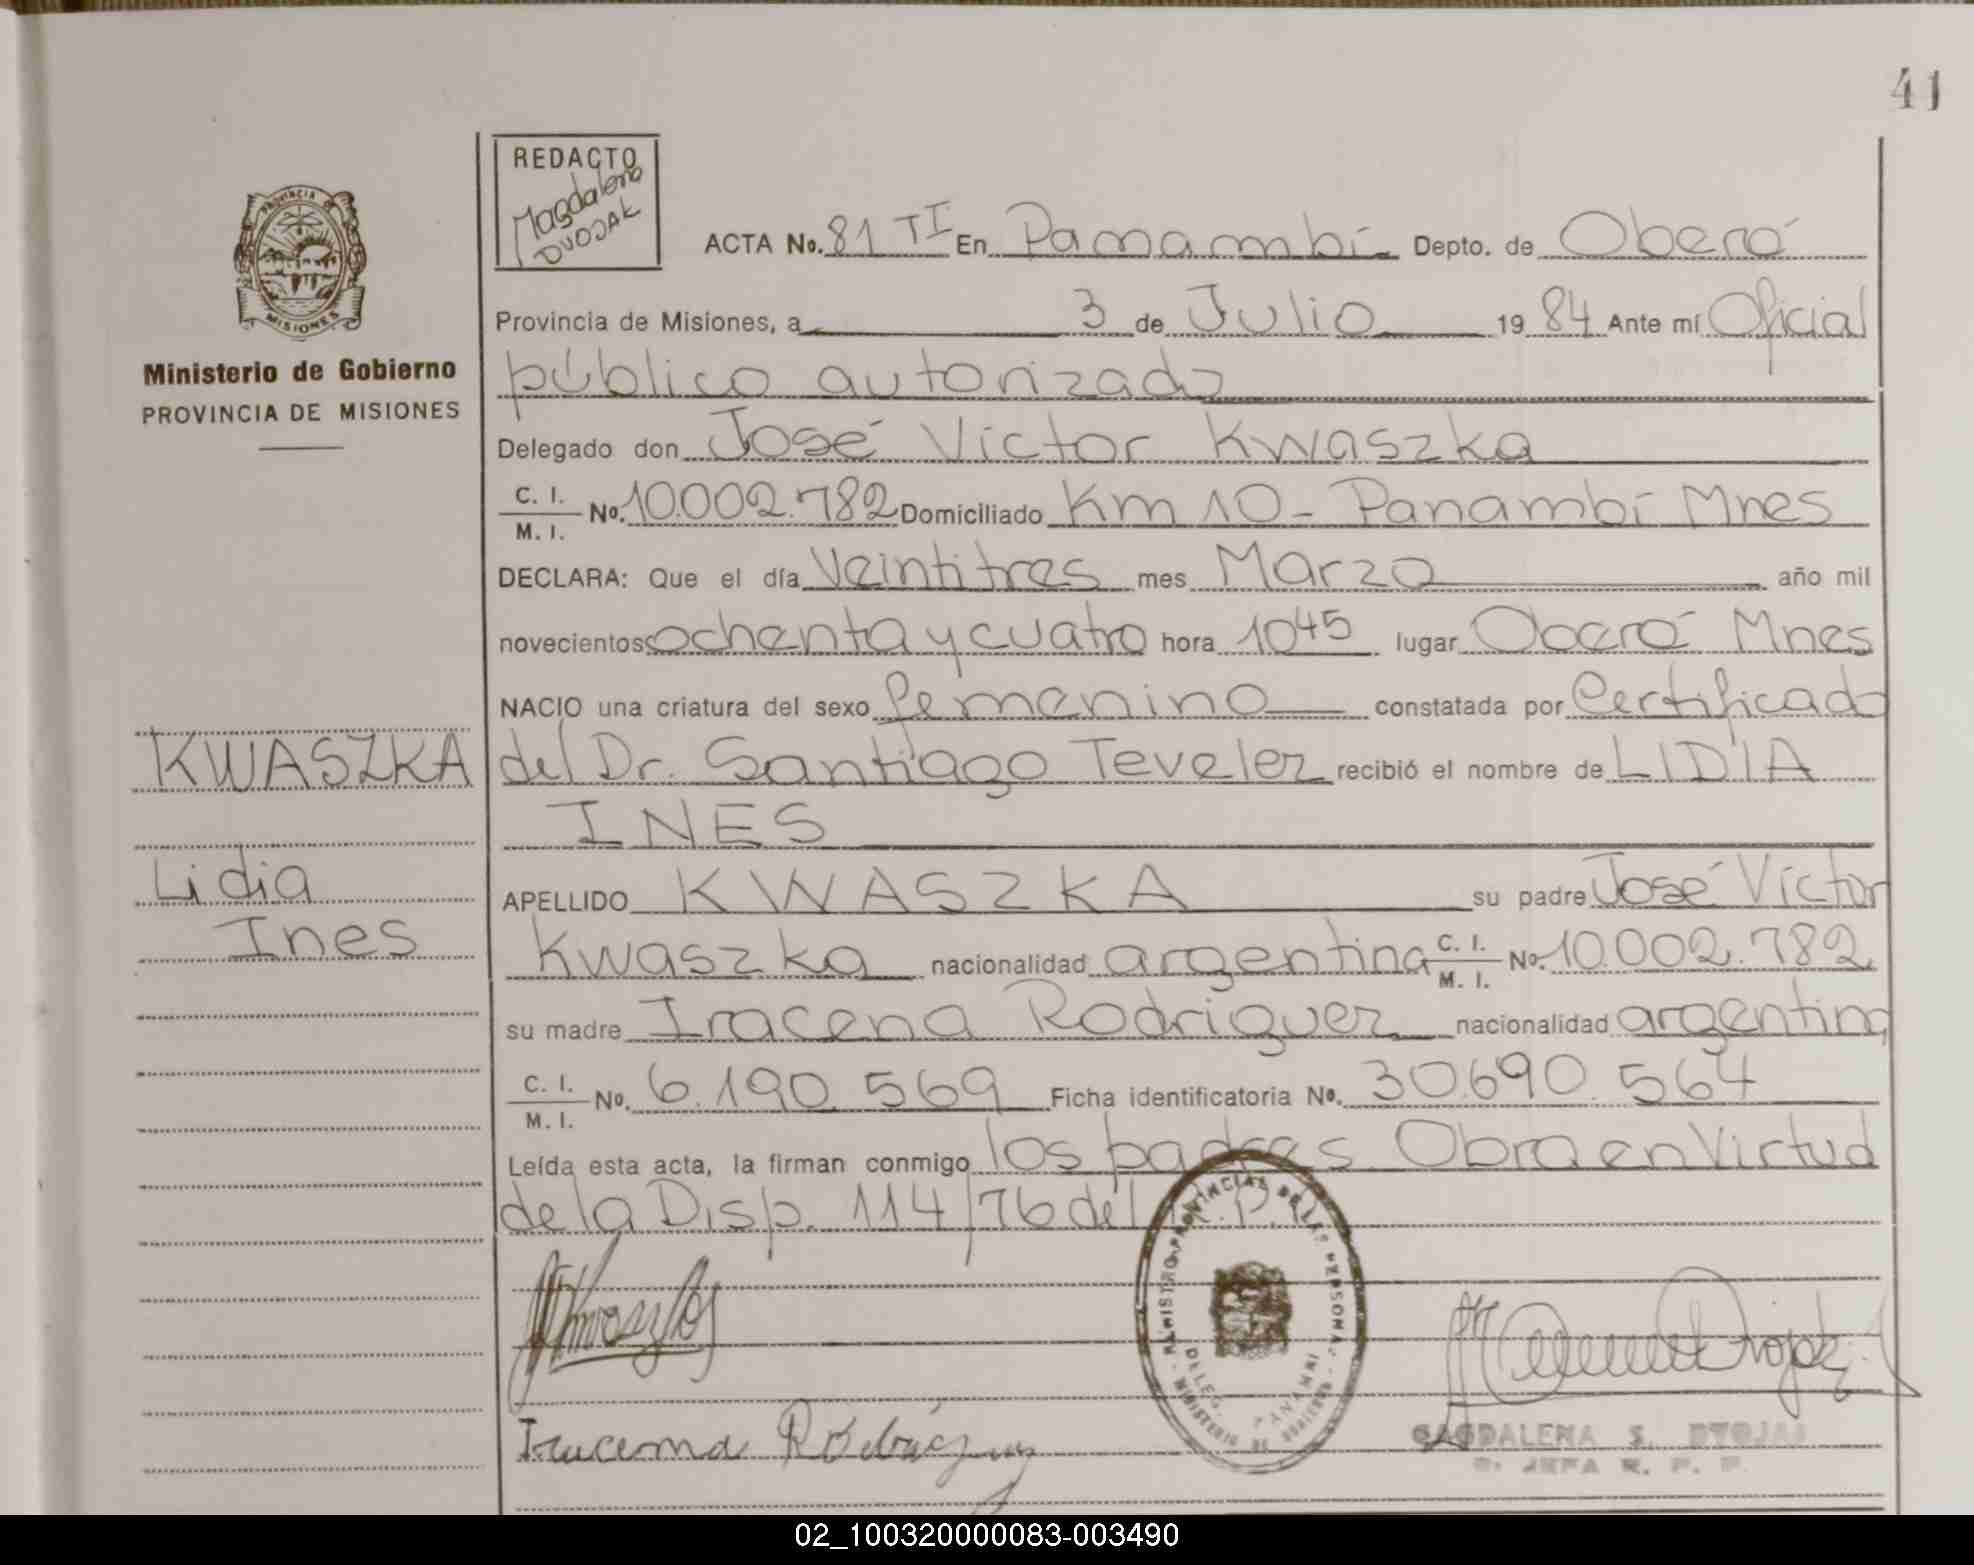 41
REDACTO
Magdalena
DVOJAK
PROVINCIA DE
MISIONES
ACTA No. 81 TI En Panambí Depto. de Oberá
Provincia de Misiones, a 3 de Julio 1984 Ante mí Oficial
público autorizado
Ministerio de Gobierno
PROVINCIA DE MISIONES
Delegado don José Victor Kwaszka
C. I.
M. I. No. 10.002.782 Domiciliado Km 10 - Panambí Mnes
DECLARA: Que el día Veintitres mes Marzo año mil
novecientos ochenta y cuatro hora 10 45 lugar Oberá Mnes
NACIO una criatura del sexo femenino constatada por Certificado
KWASZKA
del Dr. Santiago Teveler recibió el nombre de LIDIA
INES
Lidia
Ines
APELLIDO KWASZKA su padre José Victor
Kwaszka nacionalidad argentina C. I. M. I. No. 10.002.782
su madre Iracena Rodriguez nacionalidad argentina
C. I.
M. I. No. 6.190.569 Ficha identificatoria No. 30.690.564
Leída esta acta, la firman conmigo los padres Obra en Virtud
de la Disp. 114/76 del R.P.
MINISTERIO DE GOBIERNO
DELEG. PANAMBI
Iracema Rodriguez
MAGDALENA S. DVOJAK
JEFA R. P. P.
02_100320000083-003490